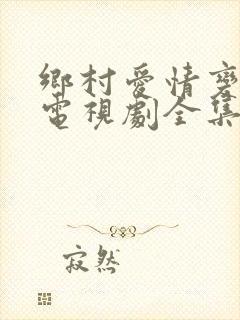 鄉村愛情變
電視劇全集
寂然